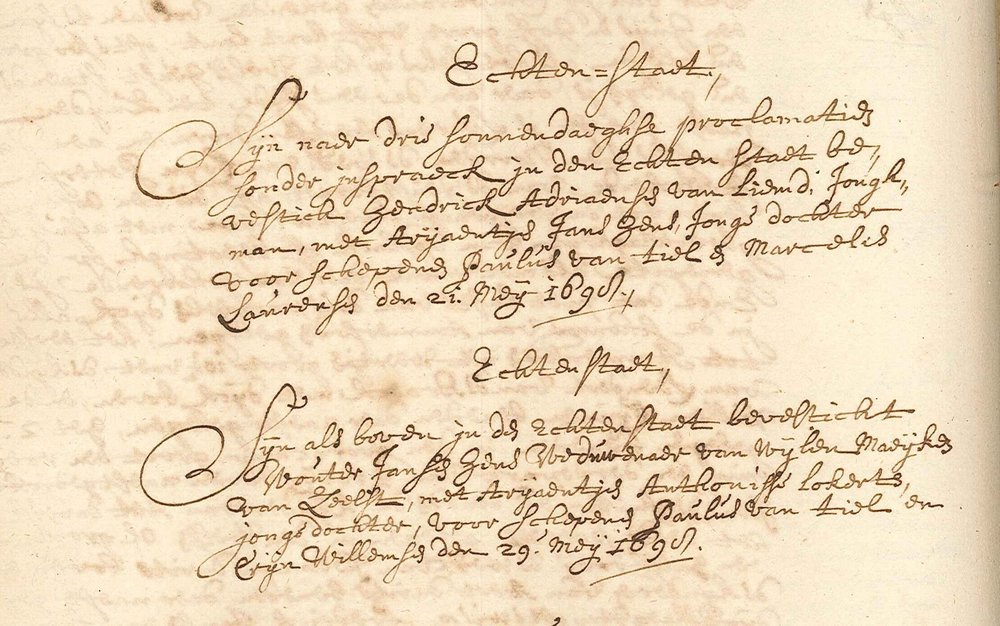 Echten=staet,
Sijn naer drie sonnendaeghse proclamatien
sonder inspraeck in den Echten staet be,
vestick Hendrick Adriaense van Liemd, Jongh,
man, met Aryaentje Jans Hens, Jonge dochter
voor schepene Paulus van tiel en Marcelis
Laurense den 21. Meij 1698.,
Echtenstaet,
Sijn als boven in de Echtenstaet bevesticht
Wouter Janse Hens Weduwenaer van Wijlen Maeijken
van Zeelst, met Aryaentje Anthonisse Lokerts,
jonge dochter, voor schepene Paulus van tiel en
Willemse den 29. Meij 1698.